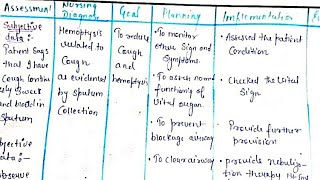 Assessment
Nursing Diagnosis
Goal
Planning
Implementation
Subjective
data:-
Patient says
that I have
Cough
and blood in
Sputum
Objective
data:-
Observe
Hemoptysis
related to
Cough
as evidenced
by sputum
Collection
To reduce
Cough
and
hemoptysis
To monitor
other Sign and
Symptoms.
To assess
functioning of
Vital organ.
To prevent
blockage airway
To Clear airway
Assessed the patient
Condition
Checked the Vital
Sign
Provide further
provision
provide nebuliza-
tion therapy